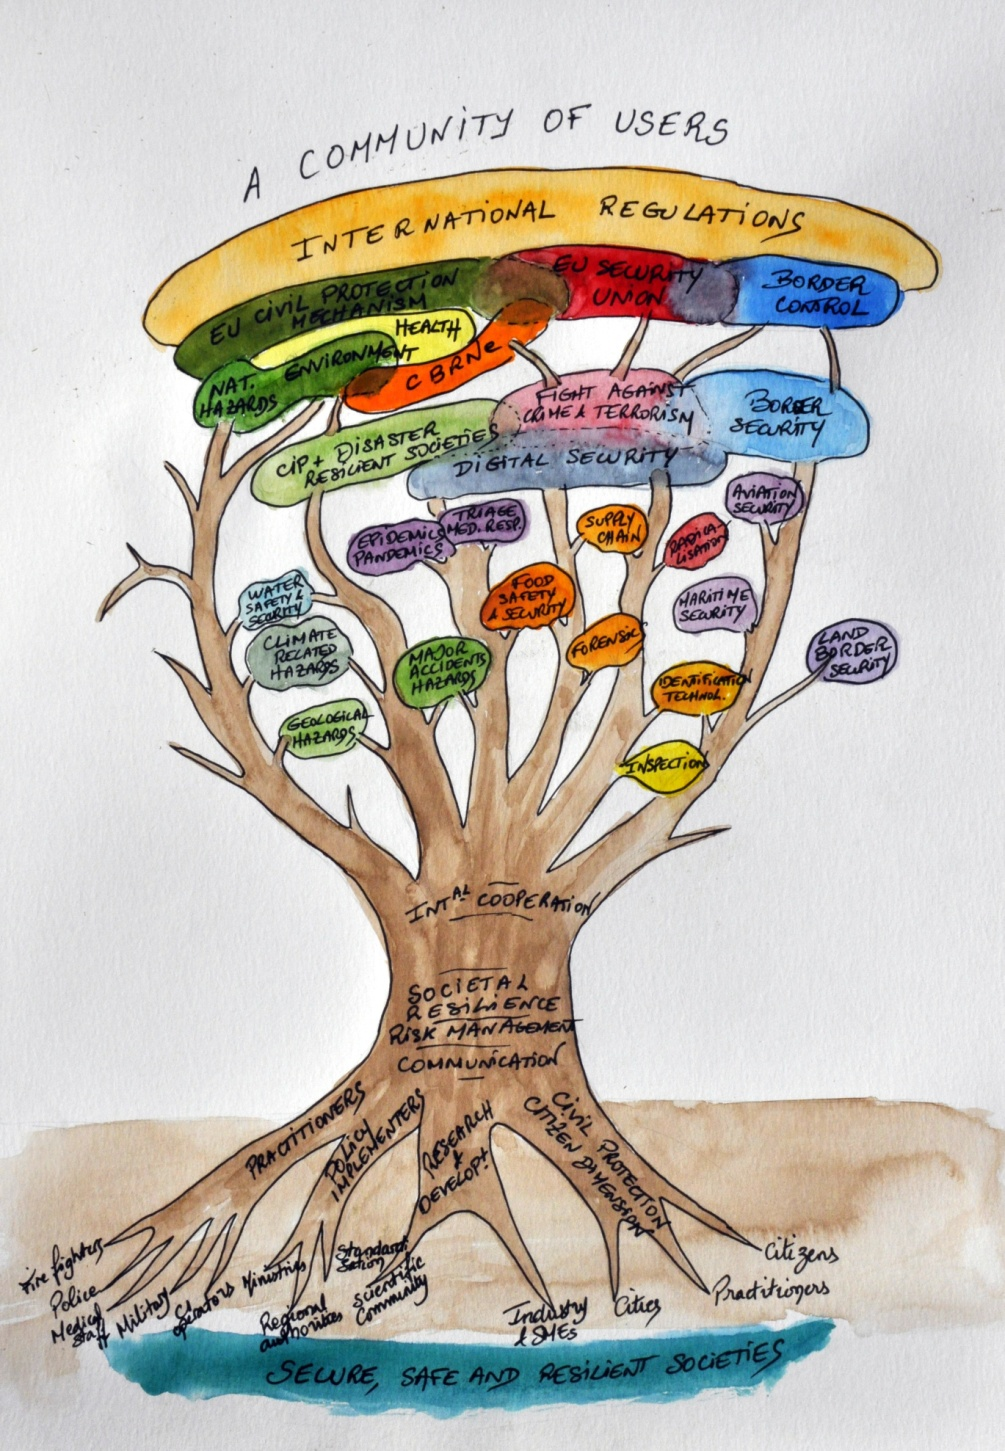 A COMMUNITY OF USERS
INTERNATIONAL REGULATIONS
EU CIVIL PROTECTION
MECHANISM
EU SECURITY
UNION
BORDER
CONTROL
HEALTH
ENVIRONMENT
NAT.
HAZARDS
CBRNe
CIP + DISASTER
RESILIENT SOCIETIES
FIGHT AGAINST
CRIME & TERRORISM
BORDER
SECURITY
DIGITAL SECURITY
EPIDEMICS
PANDEMICS
TRIAGE
MED. RESP.
SUPPLY
CHAIN
RADICA-
LISATION
AVIATION
SECURITY
WATER
SAFETY &
SECURITY
FOOD
SAFETY
& SECURITY
MARITIME
SECURITY
CLIMATE
RELATED
HAZARDS
MAJOR
ACCIDENTS
HAZARDS
FORENSIC
LAND
BORDER
SECURITY
IDENTIFICATION
TECHNOL.
GEOLOGICAL
HAZARDS
INSPECTION
INTAL COOPERATION
SOCIETAL
RESILIENCE
RISK MANAGEMENT
COMMUNICATION
PRACTITIONERS
POLICY
IMPLEMENTERS
RESEARCH
&
DEVELOPT
CIVIL PROTECTION
CITIZEN DIMENSION
Fire fighters
Police
Medical
Staff
Military
CI
operators
Ministries
Regional
authorities
Standardi
sation
Scientific
Community
Industry
& SMEs
Cities
Practitioners
Citizens
SECURE, SAFE AND RESILIENT SOCIETIES